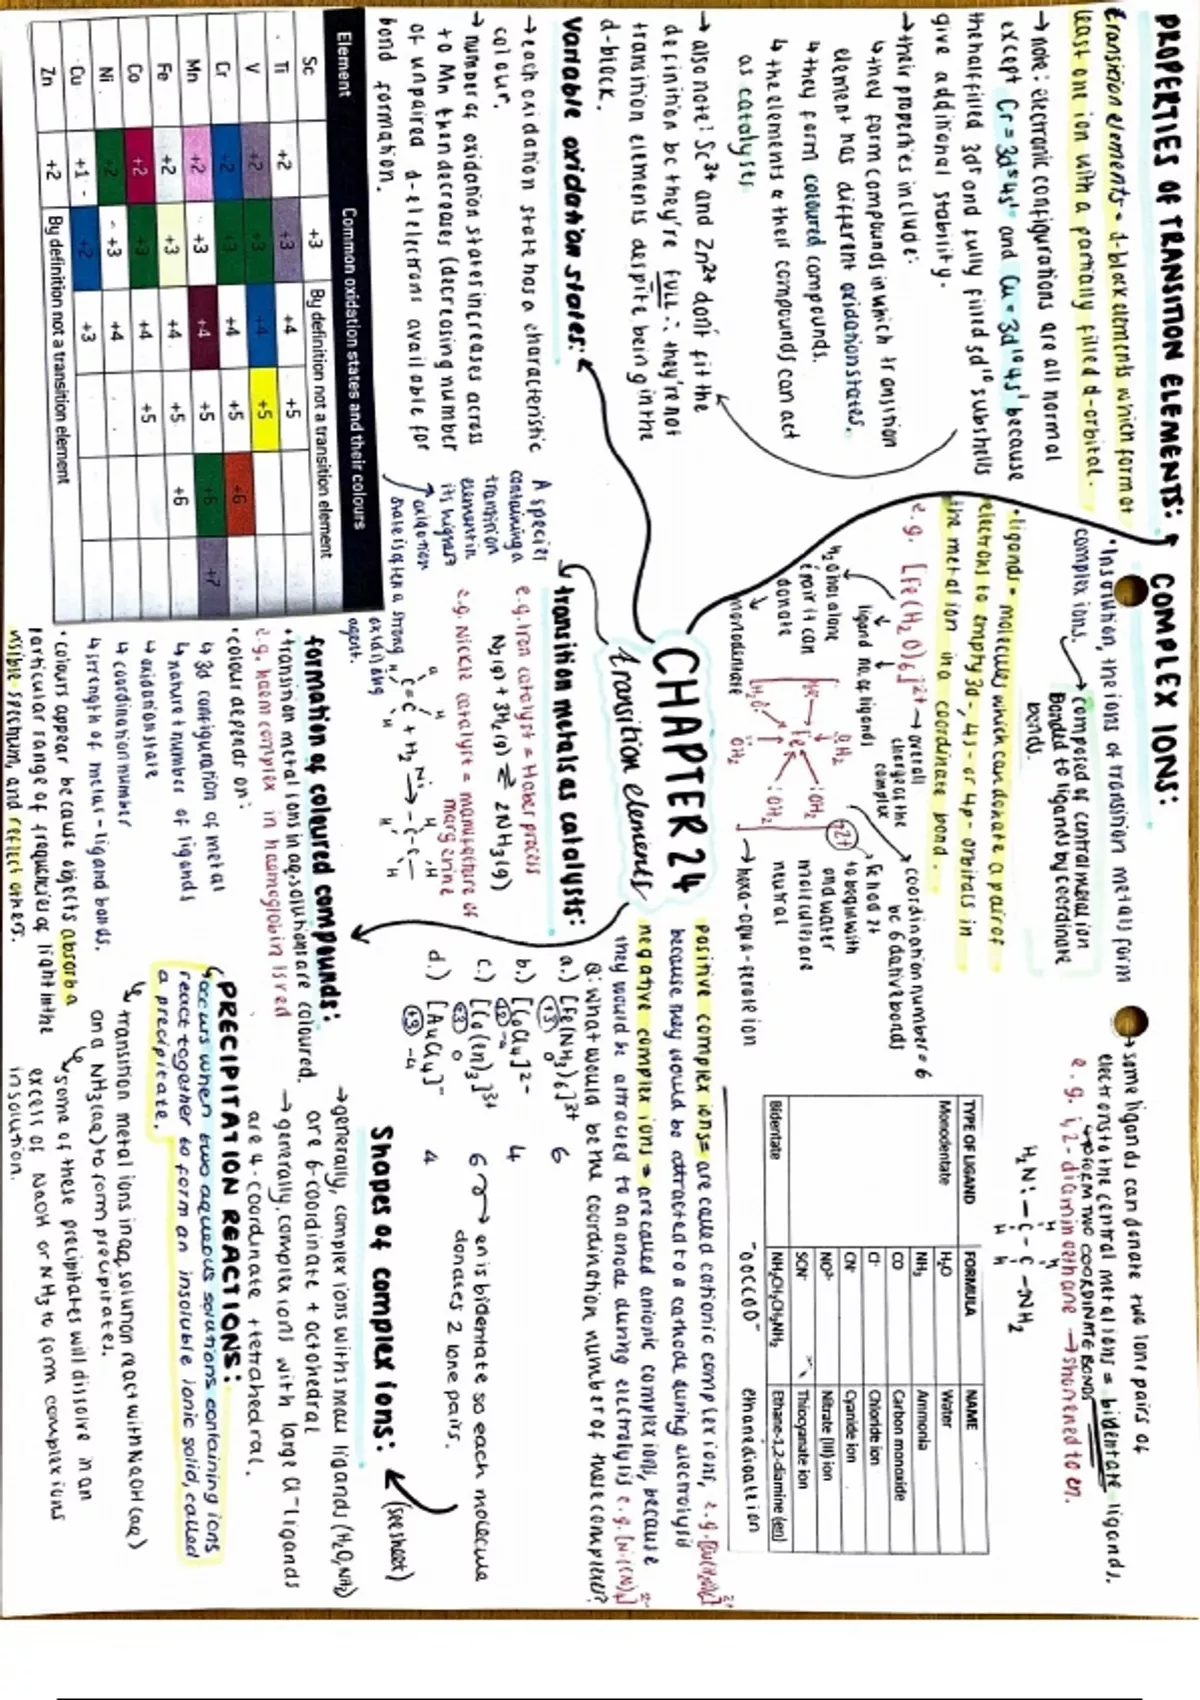 PROPERTIES OF TRANSITION ELEMENTS:
transition elements = d-block elements which form at
least one ion with a partially filled d-orbital.
→ note: electronic configurations are all normal
except Cr = 3d⁵4s¹ and Cu = 3d¹⁰4s¹ because
the half filled 3d⁵ and fully filled 3d¹⁰ subshells
give additional stability.
→ their properties include:
↳ they form compounds in which transition
element has different oxidation states.
↳ they form coloured compounds.
↳ the elements & their compounds can act
as catalysts
→ also note: Sc³⁺ and Zn²⁺ don't fit the
definition bc they're FULL ∴ they're not
transition elements despite being in the
d-block.
Variable oxidation states:
→ each oxidation state has a characteristic
colour.
→ number of oxidation states increases across
to Mn then decreases (decreasing number
of unpaired d-electrons available for
bond formation.
A species
containing a
transition
element in
its highest
oxidation
state is often a strong
oxidising
agent.
Element Common oxidation states and their colours
Sc +3 By definition not a transition element
Ti +2 +3 +4 +5
V +2 +3 +4 +5
Cr +2 +3 +4 +5 +6
Mn +2 +3 +4 +5 +6 +7
Fe +2 +3 +4 +5 +6
Co +2 +3 +4 +5
Ni +2 +3 +4
Cu +1 +2 +3
Zn +2 By definition not a transition element
CHAPTER 24
transition elements
COMPLEX IONS:
• In solution, the ions of transition metals form
complex ions. → composed of central metal ion
Bonded to ligands by coordinate
bonds.
• ligands = molecules which can donate a pair of
electrons to empty 3d-, 4s- or 4p- orbitals in
the metal ion in a coordinate bond.
e.g. [Fe(H₂O)₆]²⁺ → overall
charge of the
complex
ligand no. of ligands
H₂O has a lone
pair it can
donate
monodentate
coordination number = 6
bc 6 dative bonds
Fe had 2+
to begin with
and water
molecules are
neutral
2+
OH₂
:OH₂
:OH₂
OH₂
H₂O
Fe
→ hexa-aqua-ferole ion
→ some ligands can donate two lone pairs of
electrons to the central metal ions = bidentate ligands.
→ form TWO COORDINATE BONDS
e.g. 1,2-diaminoethane → shortened to en.
H H
H₂N: - C - C - NH₂
H H
TYPE OF LIGAND FORMULA NAME
Monodentate H₂O Water
NH₃ Ammonia
CO Carbon monoxide
Cl⁻ Chloride ion
CN⁻ Cyanide ion
NO²⁻ Nitrate (III) ion
SCN⁻ Thiocyanate ion
Bidentate NH₂CH₂CH₂NH₂ Ethane-1,2-diamine (en)
⁻OOCCOO⁻ ethanedioate ion
positive complex ions = are called cationic complex ions, e.g.
because they would be attracted to a cathode during electrolysis
negative complex ions = are called anionic complex ions, because
they would be attracted to an anode during electrolysis e.g. [Ni(CN)₄]²⁻
Q: what would be the coordination number of these complexes?
a.) [Fe(NH₃)₆]³⁺ 6
+3 0
b.) [CoCl₄]²⁻ 4
+2 -4
c.) [Co(en)₃]³⁺ 6 → en is bidentate so each molecule
+3 0 donates 2 lone pairs.
d.) [AuCl₄]⁻ 4
+3 -4
transition metals as catalysts:
e.g. Iron catalyst = Haber process
N₂(g) + 3H₂(g) ⇌ 2NH₃(g)
e.g. Nickle catalyst = manufacture of
margerine
C=C + H₂ Ni → -C-C-
formation of coloured compounds:
• transition metal ions in aq. solution are coloured.
e.g. haem complex in haemoglobin is red
• colour depends on:
↳ 3d configuration of metal
↳ nature + number of ligands
↳ oxidation state
↳ coordination number
↳ strength of metal-ligand bonds.
• colours appear because objects absorb a
particular range of frequencies of light in the
visible spectrum, and reflect others.
Shapes of complex ions: (see sheet)
→ generally, complex ions with small ligands (H₂O, NH₃)
are 6-coordinate + octohedral
→ generally, complex ions with large Cl⁻ ligands
are 4-coordinate + tetrahedral.
PRECIPITATION REACTIONS:
↳ occurs when two aqueous solutions containing ions
react together to form an insoluble ionic solid, called
a precipitate.
↳ transition metal ions in aq. solution react with NaOH(aq)
and NH₃(aq) to form precipitates.
↳ some of these precipitates will dissolve in an
excess of NaOH or NH₃ to form complex ions
in solution.